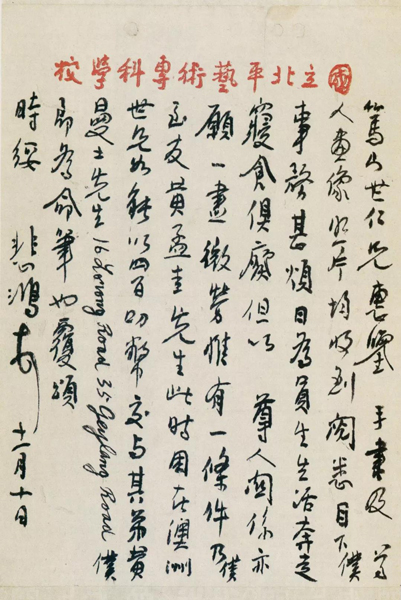 國立北平藝術專科學校
篤山世仁兄惠鑒 手書及 尊
人畫像照片均收到閱悉目下僕
事甚煩日為員生生活奔走
寢食俱廢但以 尊人關係亦
願一盡微勞惟有一條件乃僕
至友黃孟圭先生此時困在澳洲
世兄如能以四百叻幣交與其弟黃
曼士先生 16 Lorong Road 35 Geylang Road 僕
即為命筆也覆頌
時綏 悲鴻 十一月十日